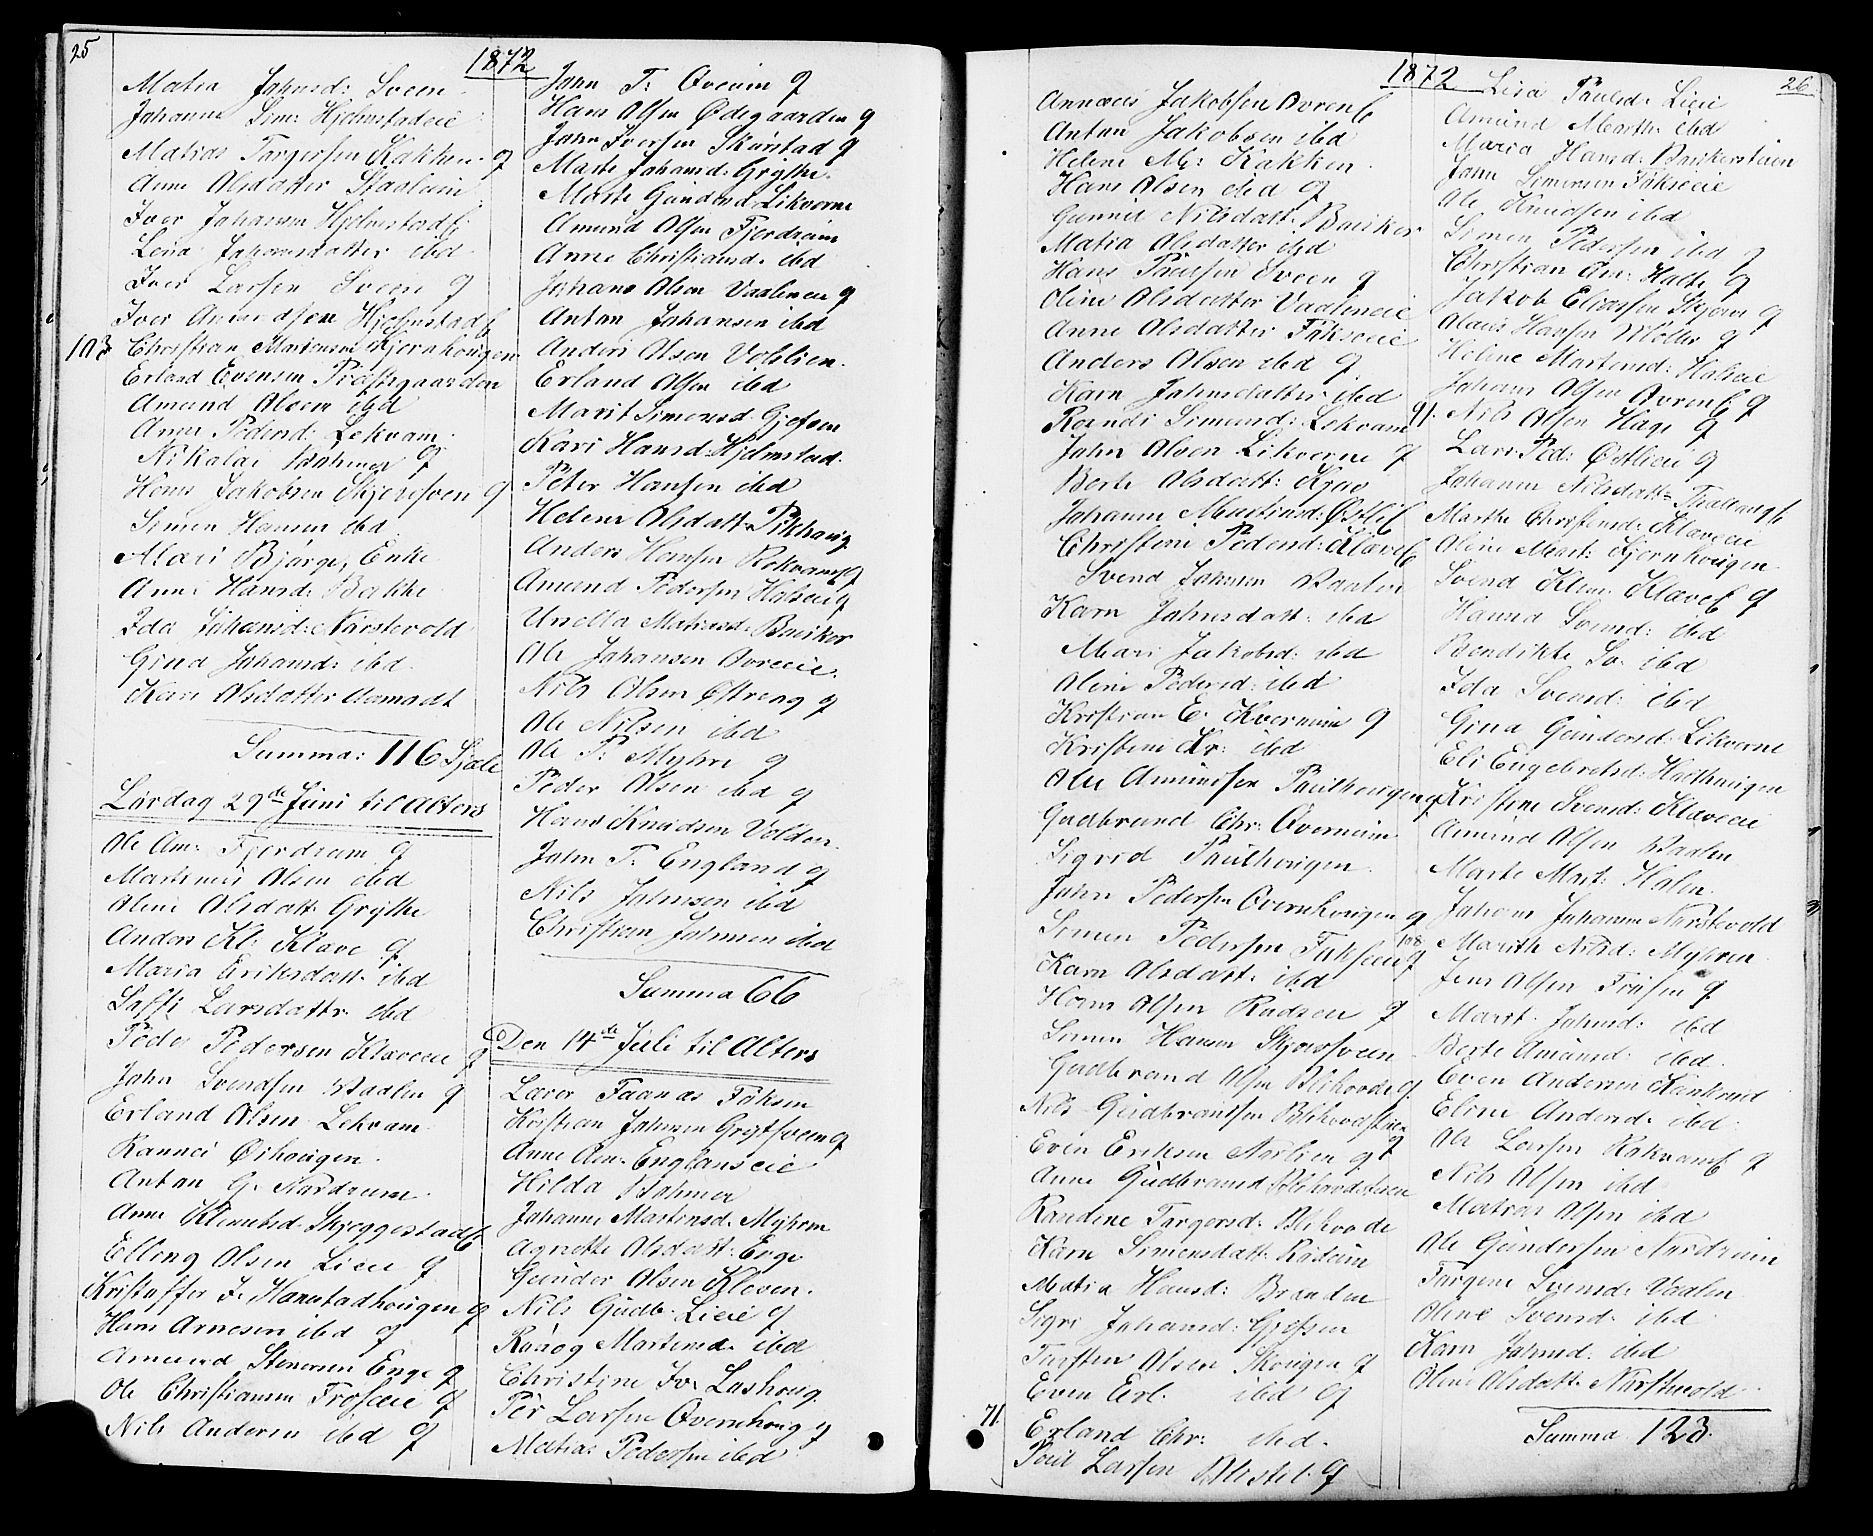 25
1872
Matia Johnsd: Sveen
Johanne Sim: Hjelmstadeie
Matias Torgersen Kakken g
Anne Olsdatter Staaleien
Iver Johansen Hjelmstad
Lena Johansdatter ibd
Iver Larsen Sveen g
Iver Amundsen Hjelmstad
103 Christian Martinsen Kjernhougen
Erland Evensen Præstgaarden
Amund Olsen ibd
Anne Pedersd: Lekvam
Nikolai g
Hans Jakobsen Skjersveen g
Simen Hansen ibd
Mari Bjørge, Enke
Anne Hansd: Bakke
Ida Johansd: Narstevold
Gina Johansd: ibd
Kari Olsdatter Aamodt
Summa: 116 Sjæle
Lørdag 29de Juni til Alters
Ole Am: Fjerdrum g
Martinus Olsen ibd
Oline Olsdatt: Grythe
Anders Kl: Klave g
Maria Eriksdatt: ibd
Larsdattr. ibd
Peder Pedersen Klaveeie g
John Svendsen Vaalen g
Erland Olsen Lekvam
Rannei Øihougen
Anton G. Nordrum
Anne Klemetsd: Skjeggestad
Elling Olsen Lieie g
Kristoffer J. Hanestadhougen g
Hans Arnesen ibd g
Amund Stenersen Enge g
Ole Christiansen Froseie g
Nils Andersen ibd g
John T: Øverum g
Hans Olsen Ødegaarden g
John Iversen Skurstad g
Marte Johansd: Grythe
Marte Gundersd. Likverne
Amund Olsen Fjerdrum
Anne Christiansd. ibd
Johans Olsen Vaaleneie g
Anton Johansen ibd
Anders Olsen Vohlien
Erland Olsen ibd
Marit Simensd: Gjefsen
Kari Hansd: Hjelmstad
Peter Hansen ibd
Helene Olsdatt: Pikhaug
Anders Hansen Rokvam g
Amund Pedersen Halseie g
Unella Matiasd: Bueker
Ole Johansen Ovreeie
Nils Olsen Østreng g
Ole Nilsen ibd
Ole P: Myhre g
Peder Olsen ibd g
Hans Knudsen Volden
John T: England g
Nils Johnsen ibd
Christian Johnsen ibd
Summa 66
Den 14de Juli til Alters
Lærer Faanas Foksen
Kristian Johnsen Grytsveen g
Anne Am: Englandseie
Hilda
Johanne Martinsd: Myhren
Agnette Olsdatt: Enge
Gunder Olsen Kleven
Nils Gudb: Lieie g
Rønog Martinsd. ibd
Christine Iv: Lushoug
Per Larsen Øvernhoug g
Matias Pedersen ibd
1872
26
Annæus Jakobsen Ovren
Anton Jakobsen ibd
Helene M: Kakken
Hans Olsen ibd g
Gunnil Nilsdatt: Bueker
Matia Olsdatter ibd
Hans Paulsen Sveen g
Oline Olsdatter Vaaleneie
Anne Olsdatter Fokseeie
Anders Olsen ibd g
Karn Johnsdatter ibd
Randi Simensd: Lekvam
John Olsen Likverne g
Berte Olsdatt: Kjos
Johanne Martinsd: Østli
Christine Pedersd: Klave
Svend Johnsen Vaalen
Karn Johnsdatt: ibd
Mari Jakobsd: ibd
Oline Pedersd: ibd
Kristian E. Kvernum g
Kristine Kr: ibd
Ole Amundsen Paulhougen g
Gudbrand Chr: Øvernum
Sigrid Paulhougen
John Pedersen Øvernhougen g
Simen Pedersen Fokseeie g
Karn Olsdatt: ibd
Hans Olsen Rudseie g
Simen Hansen Skjersveen
Gudbrand Olsen g
Nils Gudbrandsen g
Even Eriksen Norlien g
Anne Gudbrandsd
Randine Torgersd:
Karn Simensdatt:
Matia Hansd: Branden
Sigri Johansd: Gjefsen
Torsten Olsen Skougen g
Even Erl. ibd g
71. Erland Chr: ibd.
Poul Larsen Blestel. g
Lisa Paulsd: Lieie
Amund Marth: ibd
Maria Hansd: Buekersteien
John Simensen Fokseeie
Ole Knudsen ibd
Simen Pedersen ibd g
Christian An: Halte g
Jakob Eliassen Skjerve g
Olaus Hansen Møller g
Heline Martinsd: Halseie
Johans Olsen Ovren g
91. Nils Olsen Hage g
Lars Ped: Østlieie g
Johanne Nilsdatt: Thallaug
Marthe Christensd: Klaveeie
Oline Mart: Kjernhougen
Svend Klem: Klave g
Hanna Svensd: ibd
Bendikte Sv: ibd
Ida Svensd: ibd
Gina Gundersd: Likverne
Eli Engebretsd: Hatthougen
Kristine Svensd: Klaveeie
Amund Olsen Vaalen
Marte Mart: Holen
Johans Johansen Narstevold
108 Marith Nilsd: Myhren
Jens Olsen Friisen g
Marit Johnsd: ibd
Berte Amunsd: ibd.
Even Andersen Kankrud
Eline Andersd: ibd
Ole Larsen Rokvam g
Nils Olsen ibd
Matias Olsen ibd
Ole Gundersen Nordrum
Torgine Svensd: Vaalen
Oline Svensd: ibd
Karn Johnsd: ibd
Oline Olsdatt: Narstevold
Summa 123.